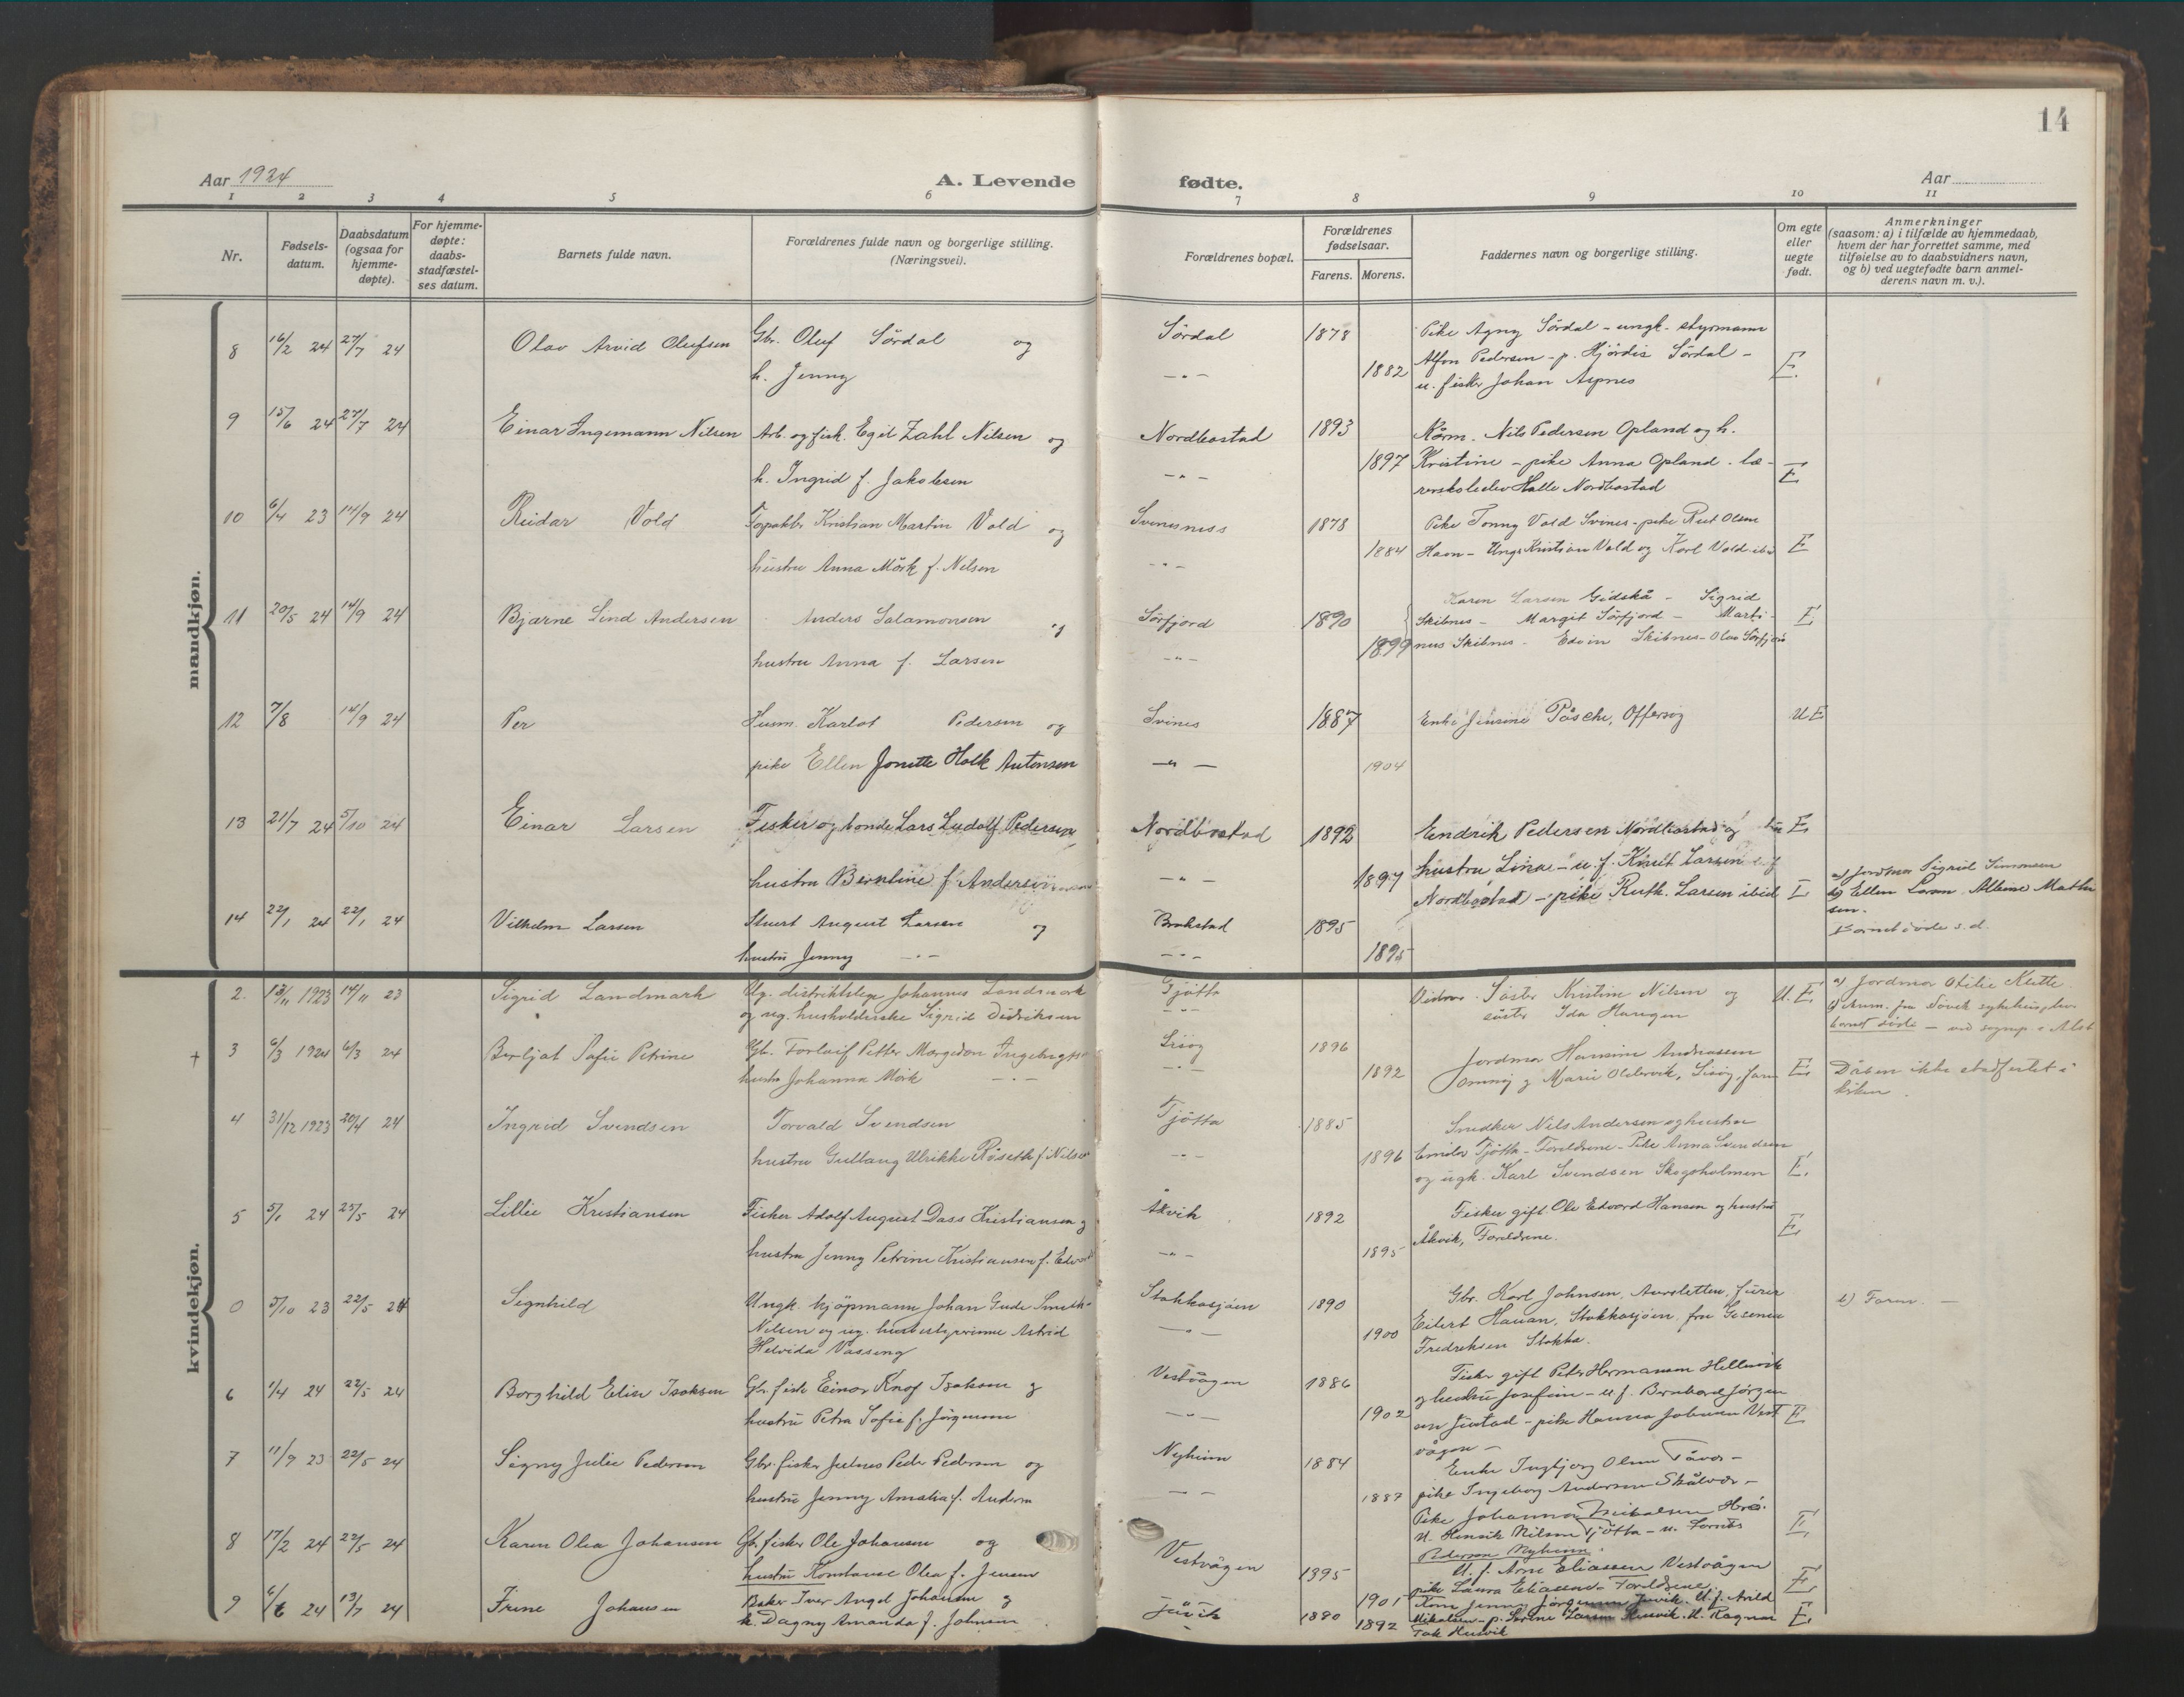 14
Aar 1924
A. Levende fødte.
Aar
1 2 3 4 5 6 7 8 9 10 11
Nr.
Fødsels-
datum.
Daabsdatum
(ogsaa for
hjemme-
døpte).
For hjemme-
døpte:
daabs-
stadfæstel-
ses datum.
Barnets fulde navn.
Forældrenes fulde navn og borgerlige stilling.
(Næringsvei).
Forældrenes bopæl.
Forældrenes
fødselsaar.
Farens. Morens.
Faddernes navn og borgerlige stilling.
Om egte
eller
uegte
født.
Anmerkninger
(saasom: a) i tilfælde av hjemmedaab,
hvem der har forrettet samme, med
tilføielse av to daabsvidners navn,
og b) ved uegtefødte barn anmel-
derens navn m. v.).
mandkjøn.
8 16/2 24 27/7 24 Olav Arvid Olufsen Gbr. Oluf Sördal og Sördal 1878 Pike Agny Sördal - ungk. styrmann
h. Jenny - " - 1882 Alfon Pedersen - p. Hjördis Sördal - E.
u. fisker Johan Aspnes
9 15/6 24 27/7 24 Einar Ingemann Nilsen Arb. og fisk. Egil Zahl Nilsen og Nordbostad 1893 Kårm. Nils Pedersen Opland og h.
h. Ingrid f. Jakobsen - " - 1897 Kristine - pike Anna Opland - læ-
rerskoleelev Halle Nordbostad E
10 6/4 23 14/9 24 Reidar Vold Kristian Martin Vold og Svinesness 1878 Pike Tonny Vold Svines - pike Rut Olsen
hustru Anna Mörk f. Nilsen - " - 1884 Havn - Ungk Kristian Vold og Karl Vold ibid E
11 20/5 24 14/9 24 Bjarne Lind Andersen Anders Salamonsen og Sörfjord 1890 Karen Larsen Gidskå - Sigrid
Skibnes - Margit Sörfjord - Marti- E
hustru Anna f. Larsen - " - 1899 nus Skibnes - Edvin Skibnes - Olav Sörfjord
12 7/8 14/9 24 Per Husm. Karlot Pedersen og Svines 1887 Enke Jensine Påsche, Offersöy U E
pike Ellen Jonette Holk Antonsen - " - 1904
13 21/7 24 5/10 24 Einar Larsen Fisker og bonde Lars Ludolf Pedersen Nordbostad 1892 Endrik Pedersen Nordbostad og E
hustru Berntine f. Andersen - " - 1897 hustru Lina - u. f. Knut Larsen
Nordbostad - pike Ruth Larsen ibid E
a) Jordmor Sigrid Simonsen
b) Ellen Larsen Albine Mathi
sen.
Barnet döde s. d.
14 22/1 24 22/1 24 Vilhelm Larsen Stuert August Larsen og Brakstad 1895
hustru Jenny - " - - " - 1895
kvindekjøn.
2. 13/11 1923 14/11 23 Sigrid Landmark Ug. distriktslege Johannes Landmark Tjötta Söster Kristine Nilsen og U. E
og ug. husholderske Sigrid Didriksen - " - söster Ida Hansen
a) Jordmor Otilie Klette
barnet döde -
† 3 6/3 1924 6/3 24 Berljot Sofie Petrine Gb. Torleif Petter Margedon Ingebrigts Lisöy 1896 Jordmor Hansine Andreassen
hustru Johanna Mörk - " - - " - 1892 og Marie Oldervik, Lisöy, farm E
Dåben ikke stadfestet i
kirken.
4 31/12 1923 20/4 24 Ingrid Svendsen Torvald Svendsen Tjötta 1885 Snedker Nils Andersen og hustru
hustru Gullaug Ulrikke Röseth f. Nilsen - " - 1896 Emilie Tjötta - Foreldrene - Pike Anna Svendsen
og ugk. Karl Svendsen Skogsholmen E.
5 5/1 24 25/5 24 Lillie Kristiansen Fisker Adolf August Dass Kristiansen og Åkvik 1892 Fisker gift Ole Edvard Hansen og hustru
hustru Jenny Petrine Kristiansen f. - " - 1895 Åkvik, Foreldrene. E
0 5/10 23 22/5 24 Segnhild Ungk. kjöpmann Johan Gude Smith- Stokkasjöen 1890 Gbr. Karl Johnsen, Aursletten,
Nilsen og ug. husbestyrerinne Astrid - " - 1900 Eilert Hauan, Stokkasjöen, fru Gesena
Helvida Vasseng Fredriksen Stokka.
b) Farm. -
6 1/4 24 22/5 24 Borghild Elise Isaksen Gbr. fisk Einar Knof Isaksen og Vestvågen 1886 Fisker gift Peter Hermansen Hellesvik
hustru Petra Sofie f. Jörgensen - " - 1902 og hustru Josefine - u. f. Bernhard Jörgen
sen - pike Hanna Johnsen Vest E
vågen -
7 11/9 23 22/5 24 Signy Julie Pedersen Gbr. fisker Julius Peder Pedersen og Nyheim 1884 Enke Ingbjörg Olsen Tåvær -
hustru Jenny Amalia f. Andersen - " - 1887 pike Ingeborg Andersen Skålvær -
Pike Johanna Mikalsen
U. Henrik Nilsen Tjötta - u. E
Pedersen Nyheim.
8 17/2 24 22/5 24 Karen Olea Johansen Gb. fisker Ole Johansen og Vestvågen 1895 U. f. Arne Eliassen Vestvågen
hustru Konstanse Olea f. Jensen 1901 pike Laura Eliassen - Foreldrene. E
9 6/6 24 13/7 24 Irene Johansen Baker Iver Angel Johansen og 1890 Kone Jenny Jörgensen U. f. Arild
h. Dagny Amanda f. Johnsen 1892 Mikalsen - p. Serine Larsen Husvik. U. Ragnar E
Husvik